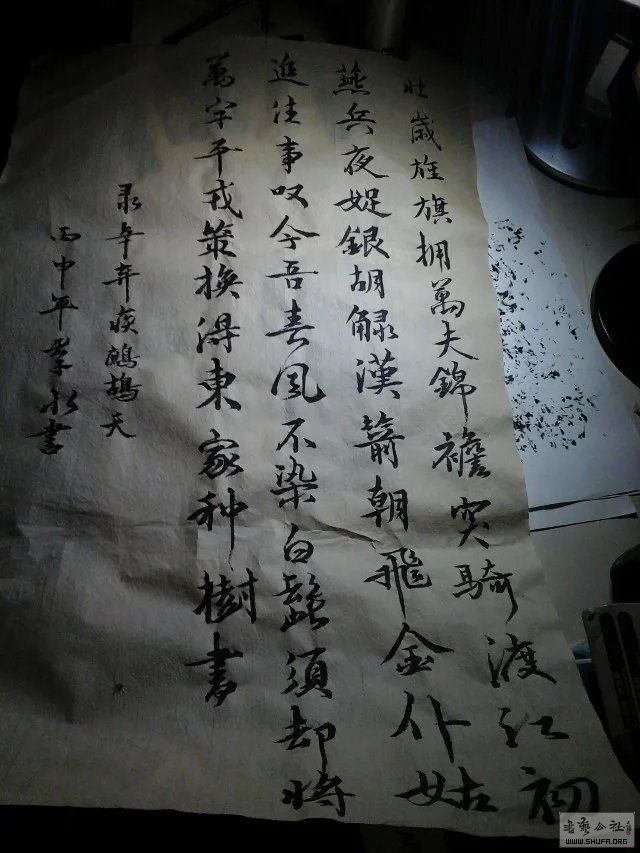 壮歲旌旗拥萬夫錦襜突騎渡江初
燕兵夜娖銀胡觮漢箭朝飛金仆姑
追往事叹今吾春風不染白髭須却将
萬字平戎策换得東家种樹書
录辛弃疾鷓鴣天
丙申年李水書
书艺公社
WWW.SHUFA.ORG